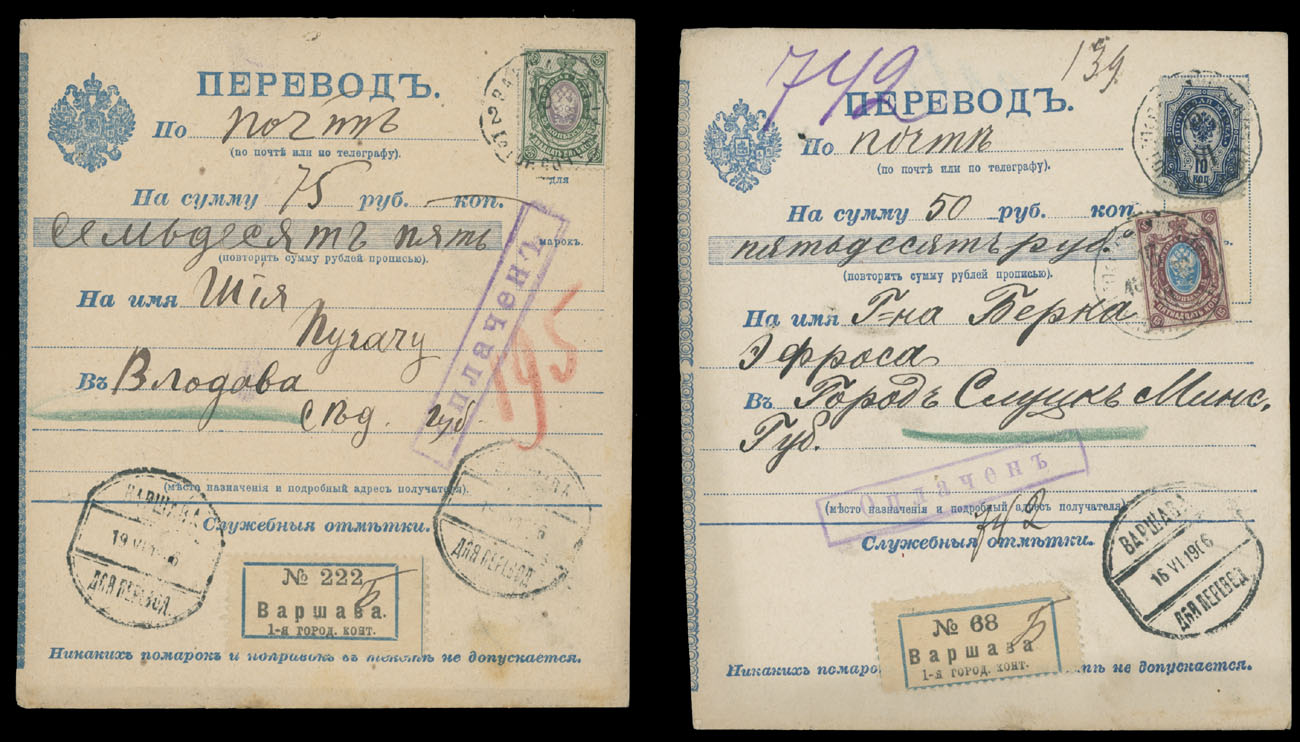 ПЕРЕВОДЪ.
По почтѣ
(по почтѣ или по телеграфу).
для
На сумму 75 руб. — коп.
Семьдесятъ пять
марокъ.
(повторить сумму рублей прописью).
На имя Шія
Пугачу
Въ Влодава
Сѣд. губ.
Оплаченъ
195
(мѣсто назначенія и подробный адресъ получателя).
Служебныя отмѣтки.
ВАРШАВА
19 VI
ДЛЯ ПЕРЕВОД.
ДЛЯ ПЕРЕВОД
№ 222
Варшава.
1-я город. конт.
Никакихъ помарокъ и поправокъ въ текстѣ не допускается.
742
139
ПЕРЕВОДЪ.
По почтѣ
(по почтѣ или по телеграфу).
10
КОП
На сумму 50 руб. коп.
пятьдесятъ руб.
(повторить сумму рублей прописью).
ПЯТНАДЦАТЬ КОП.
На имя Г=на Берка
Эфроса
Въ Городъ Слуцкъ Минс.
Губ.
Оплаченъ
(мѣсто назначенія и подробный адресъ получателя)
742
Служебныя отмѣтки.
ВАРШАВА
16 VI.1906
ДЛЯ ПЕРЕВОД
№ 68
Варшава
1-я город. конт.
Никакихъ помаро тѣ не допускается.